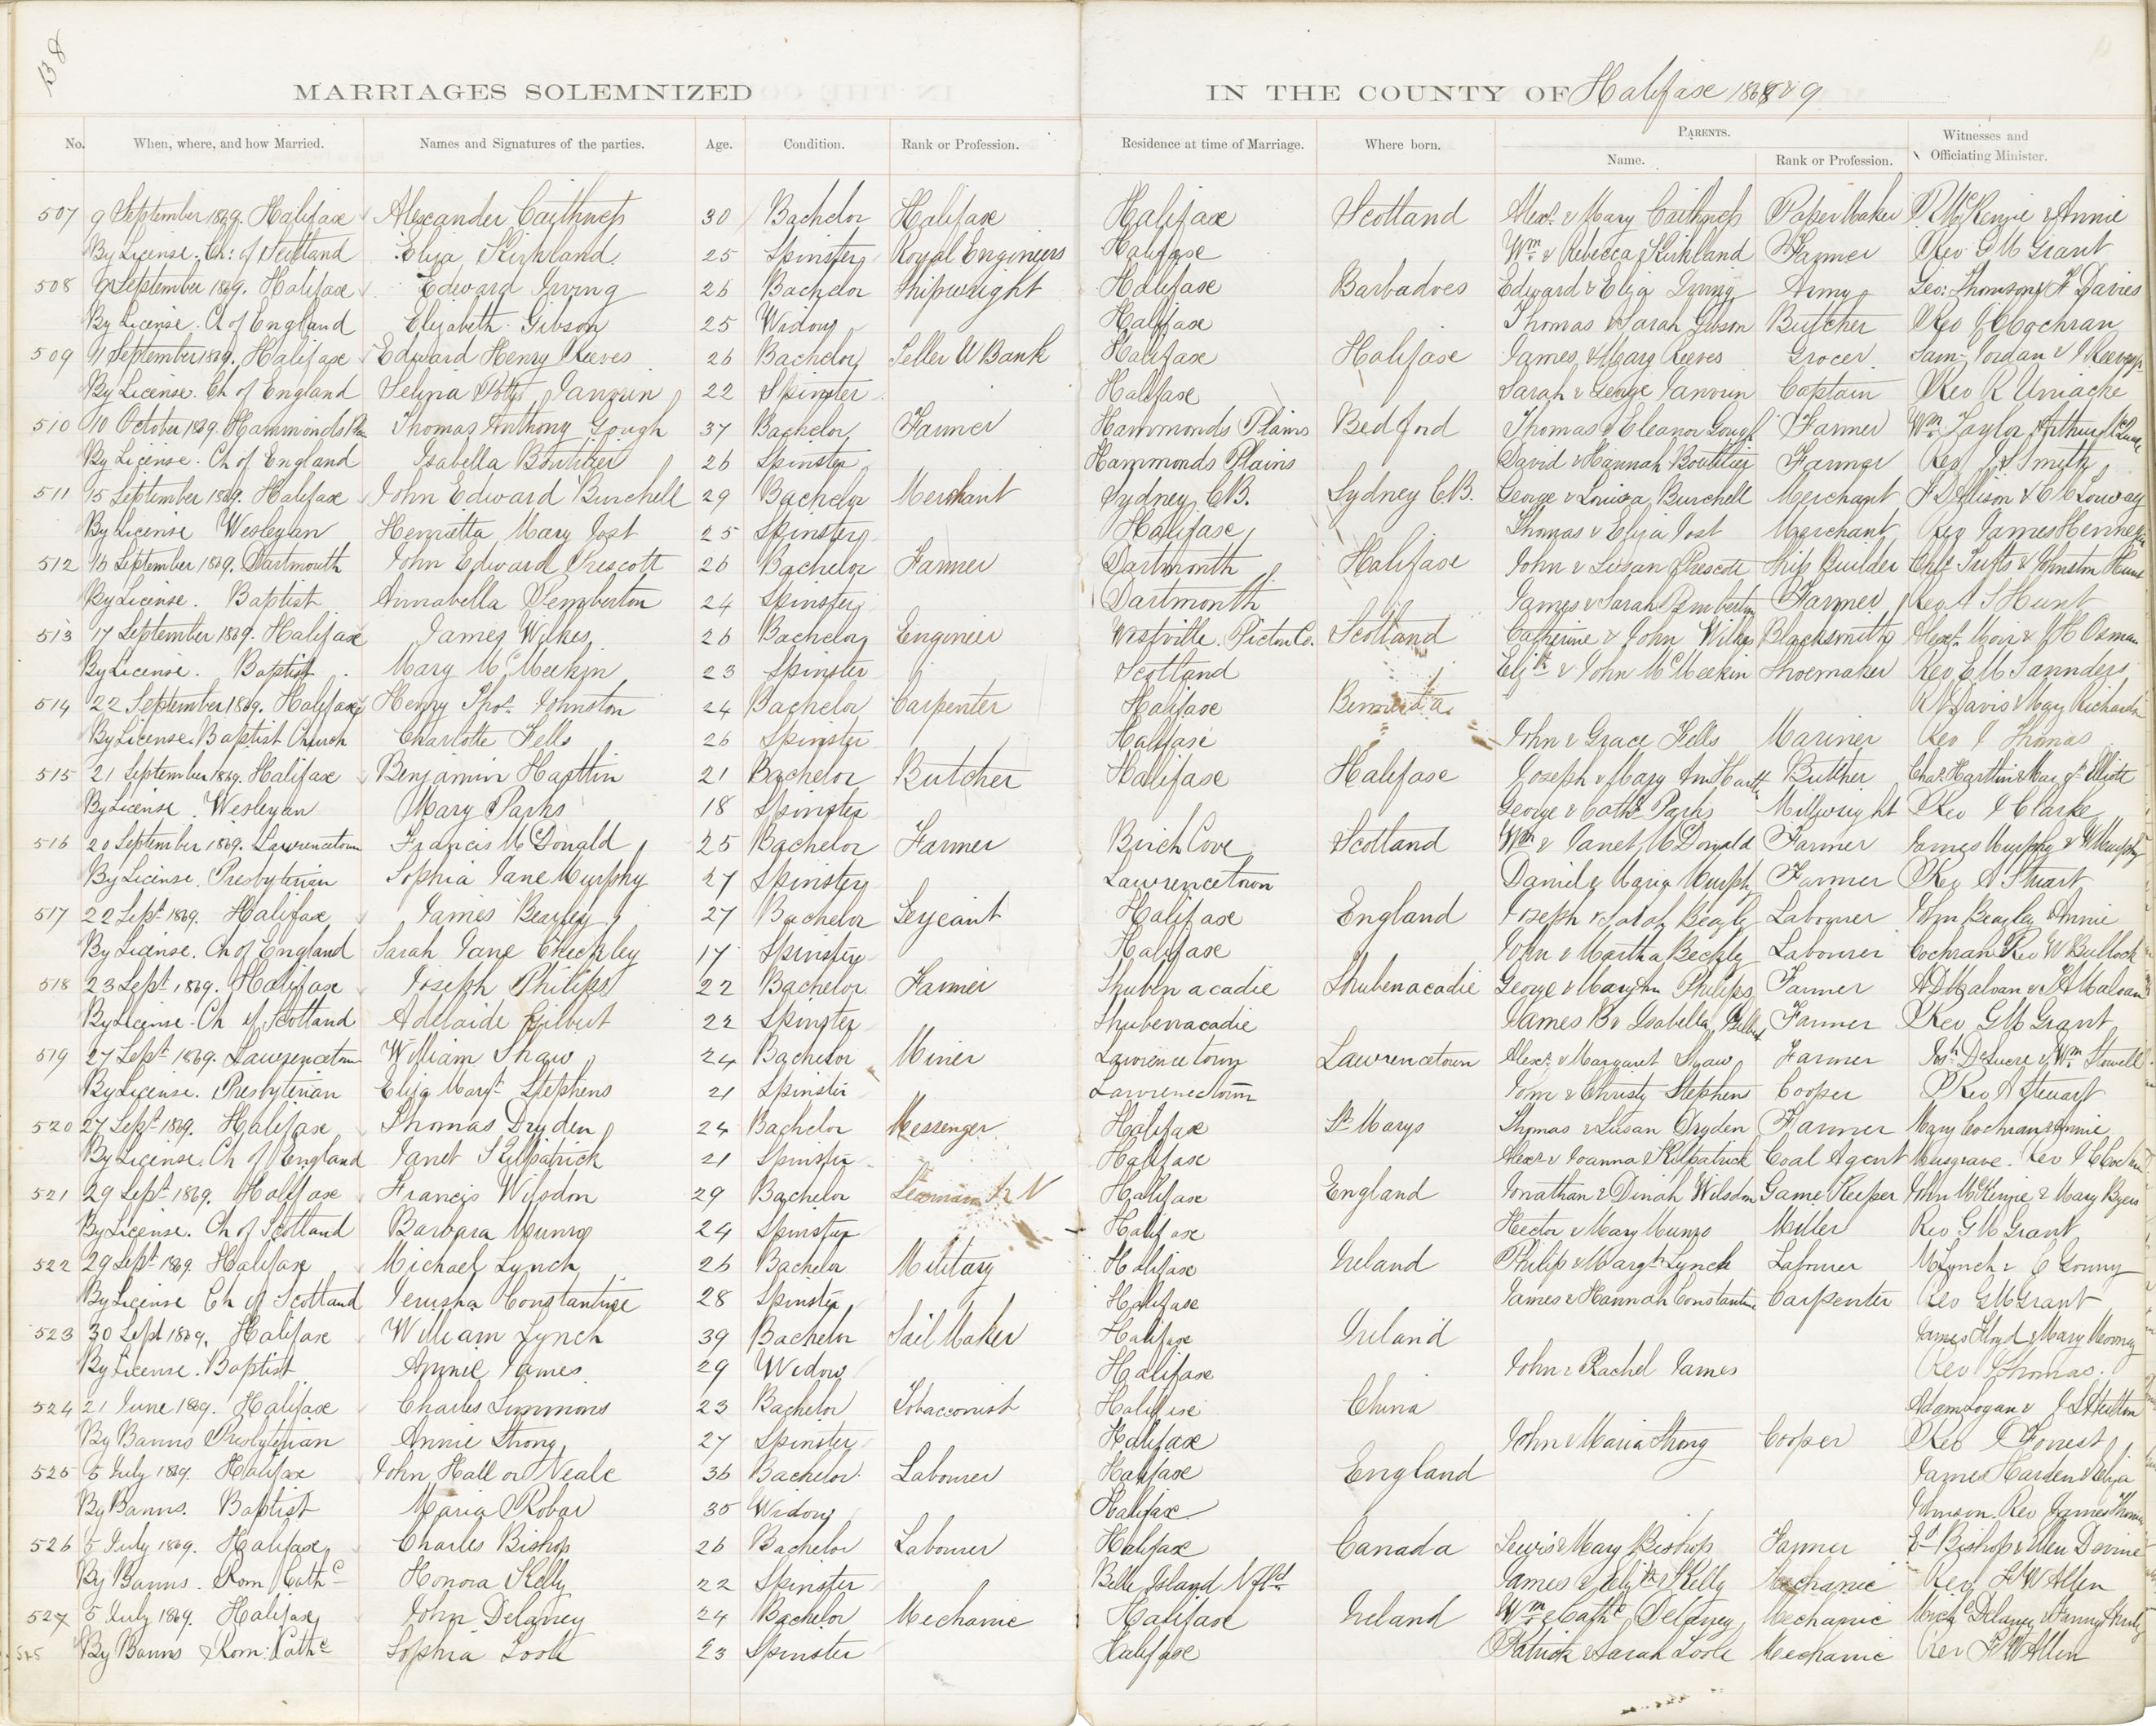 138
MARRIAGES SOLEMNIZED IN THE COUNTY OF Halifax 1868 & 9
No. When, where, and how Married. Names and Signatures of the parties. Age. Condition. Rank or Profession. Residence at time of Marriage. Where born. PARENTS. Name. Rank or Profession. Witnesses and Officiating Minister.
507 9 September 1869. Halifax Alexander Caithness 30 Bachelor Halifax Halifax Scotland Alexr. & Mary Caithness Paper Maker P. McKenzie & Annie
By License. Ch: of Scotland Eliza Kirkland 25 Spinster Royal Engineers Halifax Wm. & Rebecca Kirkland Farmer Rev G M Grant
508 9 September 1869. Halifax Edward Irving 26 Bachelor Shipwright Halifax Barbadoes Edward & Eliza Irving Army Geo: Thomson & F Davies
By License. Ch of England Elizabeth Gibson 25 Widow Halifax Thomas & Sarah Gibson Butcher Rev J C Cochran
509 9 September 1869. Halifax Edward Henry Reeves 26 Bachelor Teller U Bank Halifax Halifax James & Mary Reeves Grocer Saml Jordan & J Reeves
By License. Ch of England Selina Janvrin 22 Spinster Halifax Sarah & George Janvrin Captain Rev R Uniacke
510 10 October 1869. Hammonds Pln Thomas Anthony Gough 37 Bachelor Farmer Hammonds Plains Bedford Thomas & Eleanor Gough Farmer Wm. Taylor Arthur
By License. Ch of England Isabella Boutilier 26 Spinster Hammonds Plains David & Hannah Boutilier Farmer Rev Smith
511 15 September 1869. Halifax John Edward Burchell 29 Bachelor Merchant Sydney C.B. Sydney C.B. George & Louisa Burchell Merchant
By License Wesleyan Henrietta Mary Jost 25 Spinster Halifax Thomas & Eliza Jost Merchant Rev James Hennigar
512 16 September 1869. Dartmouth John Edward Prescott 26 Bachelor Farmer Dartmouth Halifax John & Susan Prescott Ship Builder Chs Tufts & Johnston Hunt
By License. Baptist Annabella Pemberton 24 Spinster Dartmouth James & Sarah Pemberton Farmer Rev A S Hunt
513 17 September 1869. Halifax James Wilkes 26 Bachelor Engineer Westville Pictou Co. Scotland Catherine & John Wilkes Blacksmith Alexr. Moir & J H Osman
By License. Baptist Mary McMeekin 23 Spinster Scotland Elizth & John McMeekin Shoemaker Rev E M Saunders
514 22 September 1869. Halifax Henry Thos. Johnston 24 Bachelor Carpenter Halifax Bermuda R Davis & Mary
By License. Baptist Church Charlotte Fells 26 Spinster Halifax John & Grace Fells Mariner Rev J Thomas
515 21 September 1869. Halifax Benjamin Harttin 21 Bachelor Butcher Halifax Halifax Joseph & Mary Ann Butcher Chas. Harttin & Margt. Elliott
By License. Wesleyan Mary Parks 18 Spinster George & Cathe Parks Millwright Rev J Clarke
516 20 September 1869. Lawrencetown Francis McDonald 25 Bachelor Farmer Birch Cove Scotland Wm. & Janet McDonald Farmer James Murphy & W Murphy
By License. Presbyterian Sophia Jane Murphy 27 Spinster Lawrencetown Daniel & Maria Murphy Farmer Rev A Stuart
517 22 Sept. 1869. Halifax James Beazley 27 Bachelor Serjeant Halifax England Joseph & Sarah Beazley Labourer John Beazley Annie
By License. Ch of England Sarah Jane Checkley 17 Spinster Halifax John & Martha Labourer Cochran Rev W Bullock
518 23 Sept. 1869. Halifax Joseph Philips 22 Bachelor Farmer Shubenacadie Shubenacadie George & Mary Ann Philips Farmer
By License. Ch of Scotland Adelaide Gilbert 22 Spinster Shubenacadie James B & Isabella Gilbert Farmer Rev G M Grant
519 27 Sept. 1869. Lawrencetown William Shaw 24 Bachelor Miner Lawrencetown Lawrencetown Alexr. & Margaret Shaw Farmer & Wm. Stowell
By License. Presbyterian Eliza Margt. Stephens 21 Spinster Lawrencetown & Christy Stephens Cooper Rev A Steuart
520 27 Sept. 1869. Halifax Thomas Dryden 24 Bachelor Messenger Halifax St Marys Thomas & Susan Dryden Farmer Mary Cochran & Annie
By License. Ch of England Janet Kilpatrick 21 Spinster Halifax Alexr. & Joanna Kilpatrick Coal Agent Musgrave. Rev J C Cochran
521 29 Sept. 1869. Halifax Francis Wilsdon 29 Bachelor Seaman R N Halifax England Jonathan & Dinah Wilsdon Game Keeper John McKenzie & Mary Byers
By License. Ch of Scotland Barbara Munro 24 Spinster Halifax Hector & Mary Munro Miller Rev G M Grant
522 29 Sept. 1869. Halifax Michael Lynch 26 Bachelor Military Halifax Ireland Philip & Margt. Lynch Labourer M Lynch &
By License Ch of Scotland Jerusha Constantine 28 Spinster Halifax James & Hannah Constantine Carpenter Rev G M Grant
523 30 Sept 1869. Halifax William Lynch 39 Bachelor Sail Maker Halifax Ireland James Lloyd & Mary Mooney
By License. Baptist Annie James 29 Widow Halifax John & Rachel James Rev J Thomas.
524 21 June 1869. Halifax Charles Simmons 23 Bachelor Tobacconist Halifax China Adam Logan &
By Banns Presbyterian Annie Strong 27 Spinster Halifax John & Maria Strong Cooper Rev J Forrest
525 5 July 1869. Halifax John Hall or Neale 36 Bachelor Labourer Halifax England James Harden & Eliza
By Banns. Baptist Maria Robar 35 Widow Halifax Johnson Rev James Thomas
526 5 July 1869. Halifax Charles Bishop 26 Bachelor Labourer Halifax Canada Lewis & Mary Bishop Farmer Ed Bishop & Ellen Devine
By Banns. Rom Cathc Honora Kelly 22 Spinster Belle Island Nfld. James & Elizth Kelly Mechanic Rev F W Allen
527 5 July 1869. Halifax John Delaney 24 Bachelor Mechanic Halifax Ireland Wm. & Cathe Delaney Mechanic Michl Delaney & Fanny
525 By Banns Rom: Cathc Sophia Toole 23 Spinster Halifax Patrick & Sarah Toole Mechanic Rev F W Allen